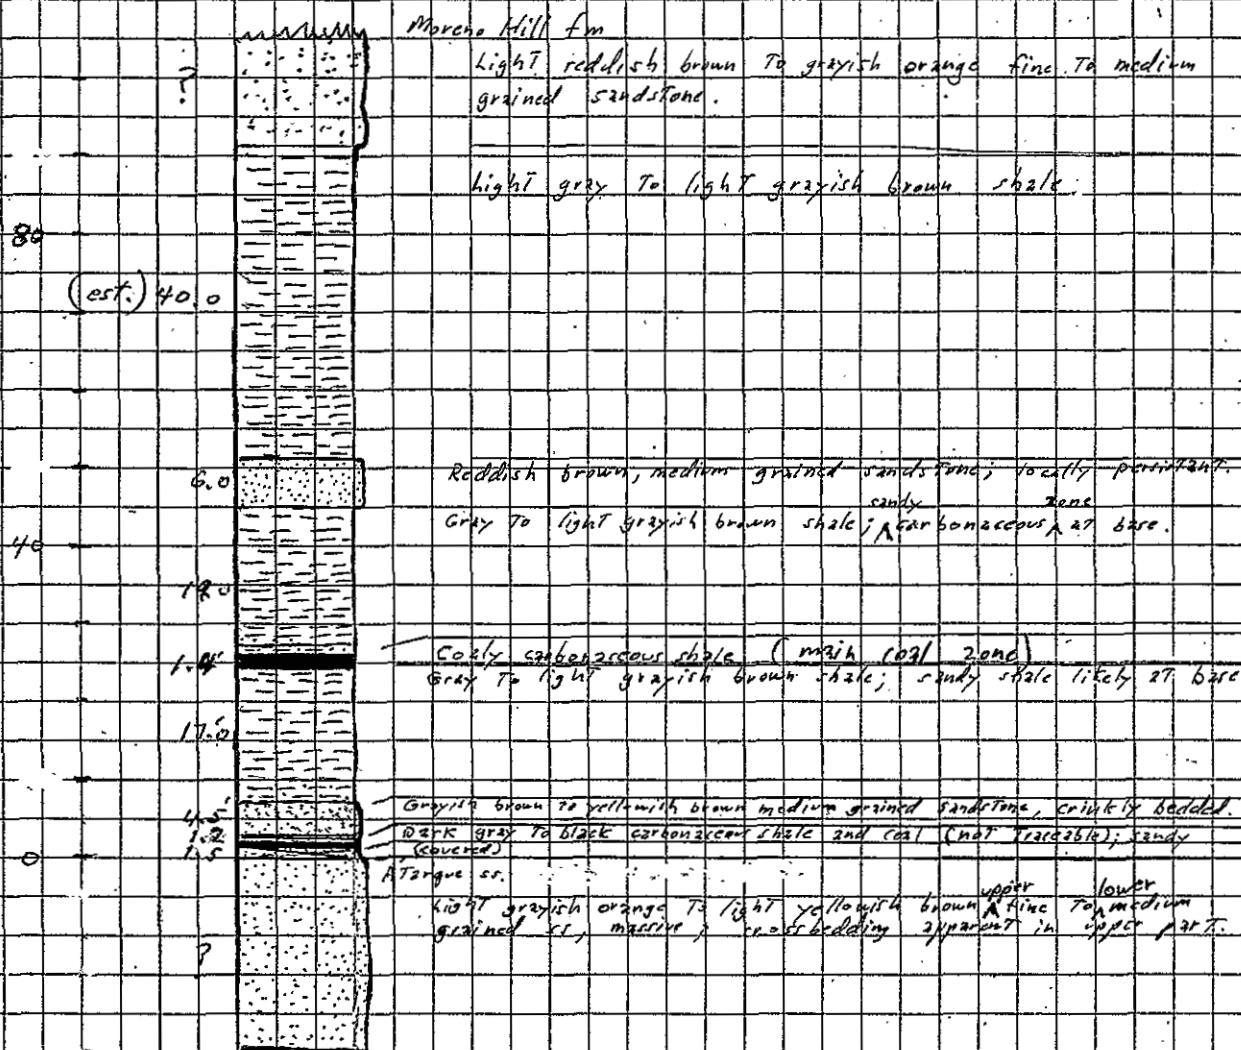 Moreno Hill fm
?
Light reddish brown To grayish orange fine To medium
grained sandstone.
Light gray To light grayish brown shale.
80
(est.) 40.0
6.0
Reddish brown, medium grained sandstone; locally persistant.
sandy zone
Gray To light grayish brown shale; ∧ carbonaceous ∧ at base.
40
Coaly carbonaceous shale (main coal zone)
Gray To light grayish brown shale; sandy shale likely at base
17.0
Grayish brown to yellowish brown medium grained sandstone, crinkly bedded.
4.5'
Dark gray To black carbonaceous shale and coal (not Traceable); sandy
(covered)
1.5
0
ATarque ss.
upper lower
Light grayish orange To light yellowish brown ∧ fine To ∧ medium
grained ss, massive; crossbedding apparent in upper part.
?